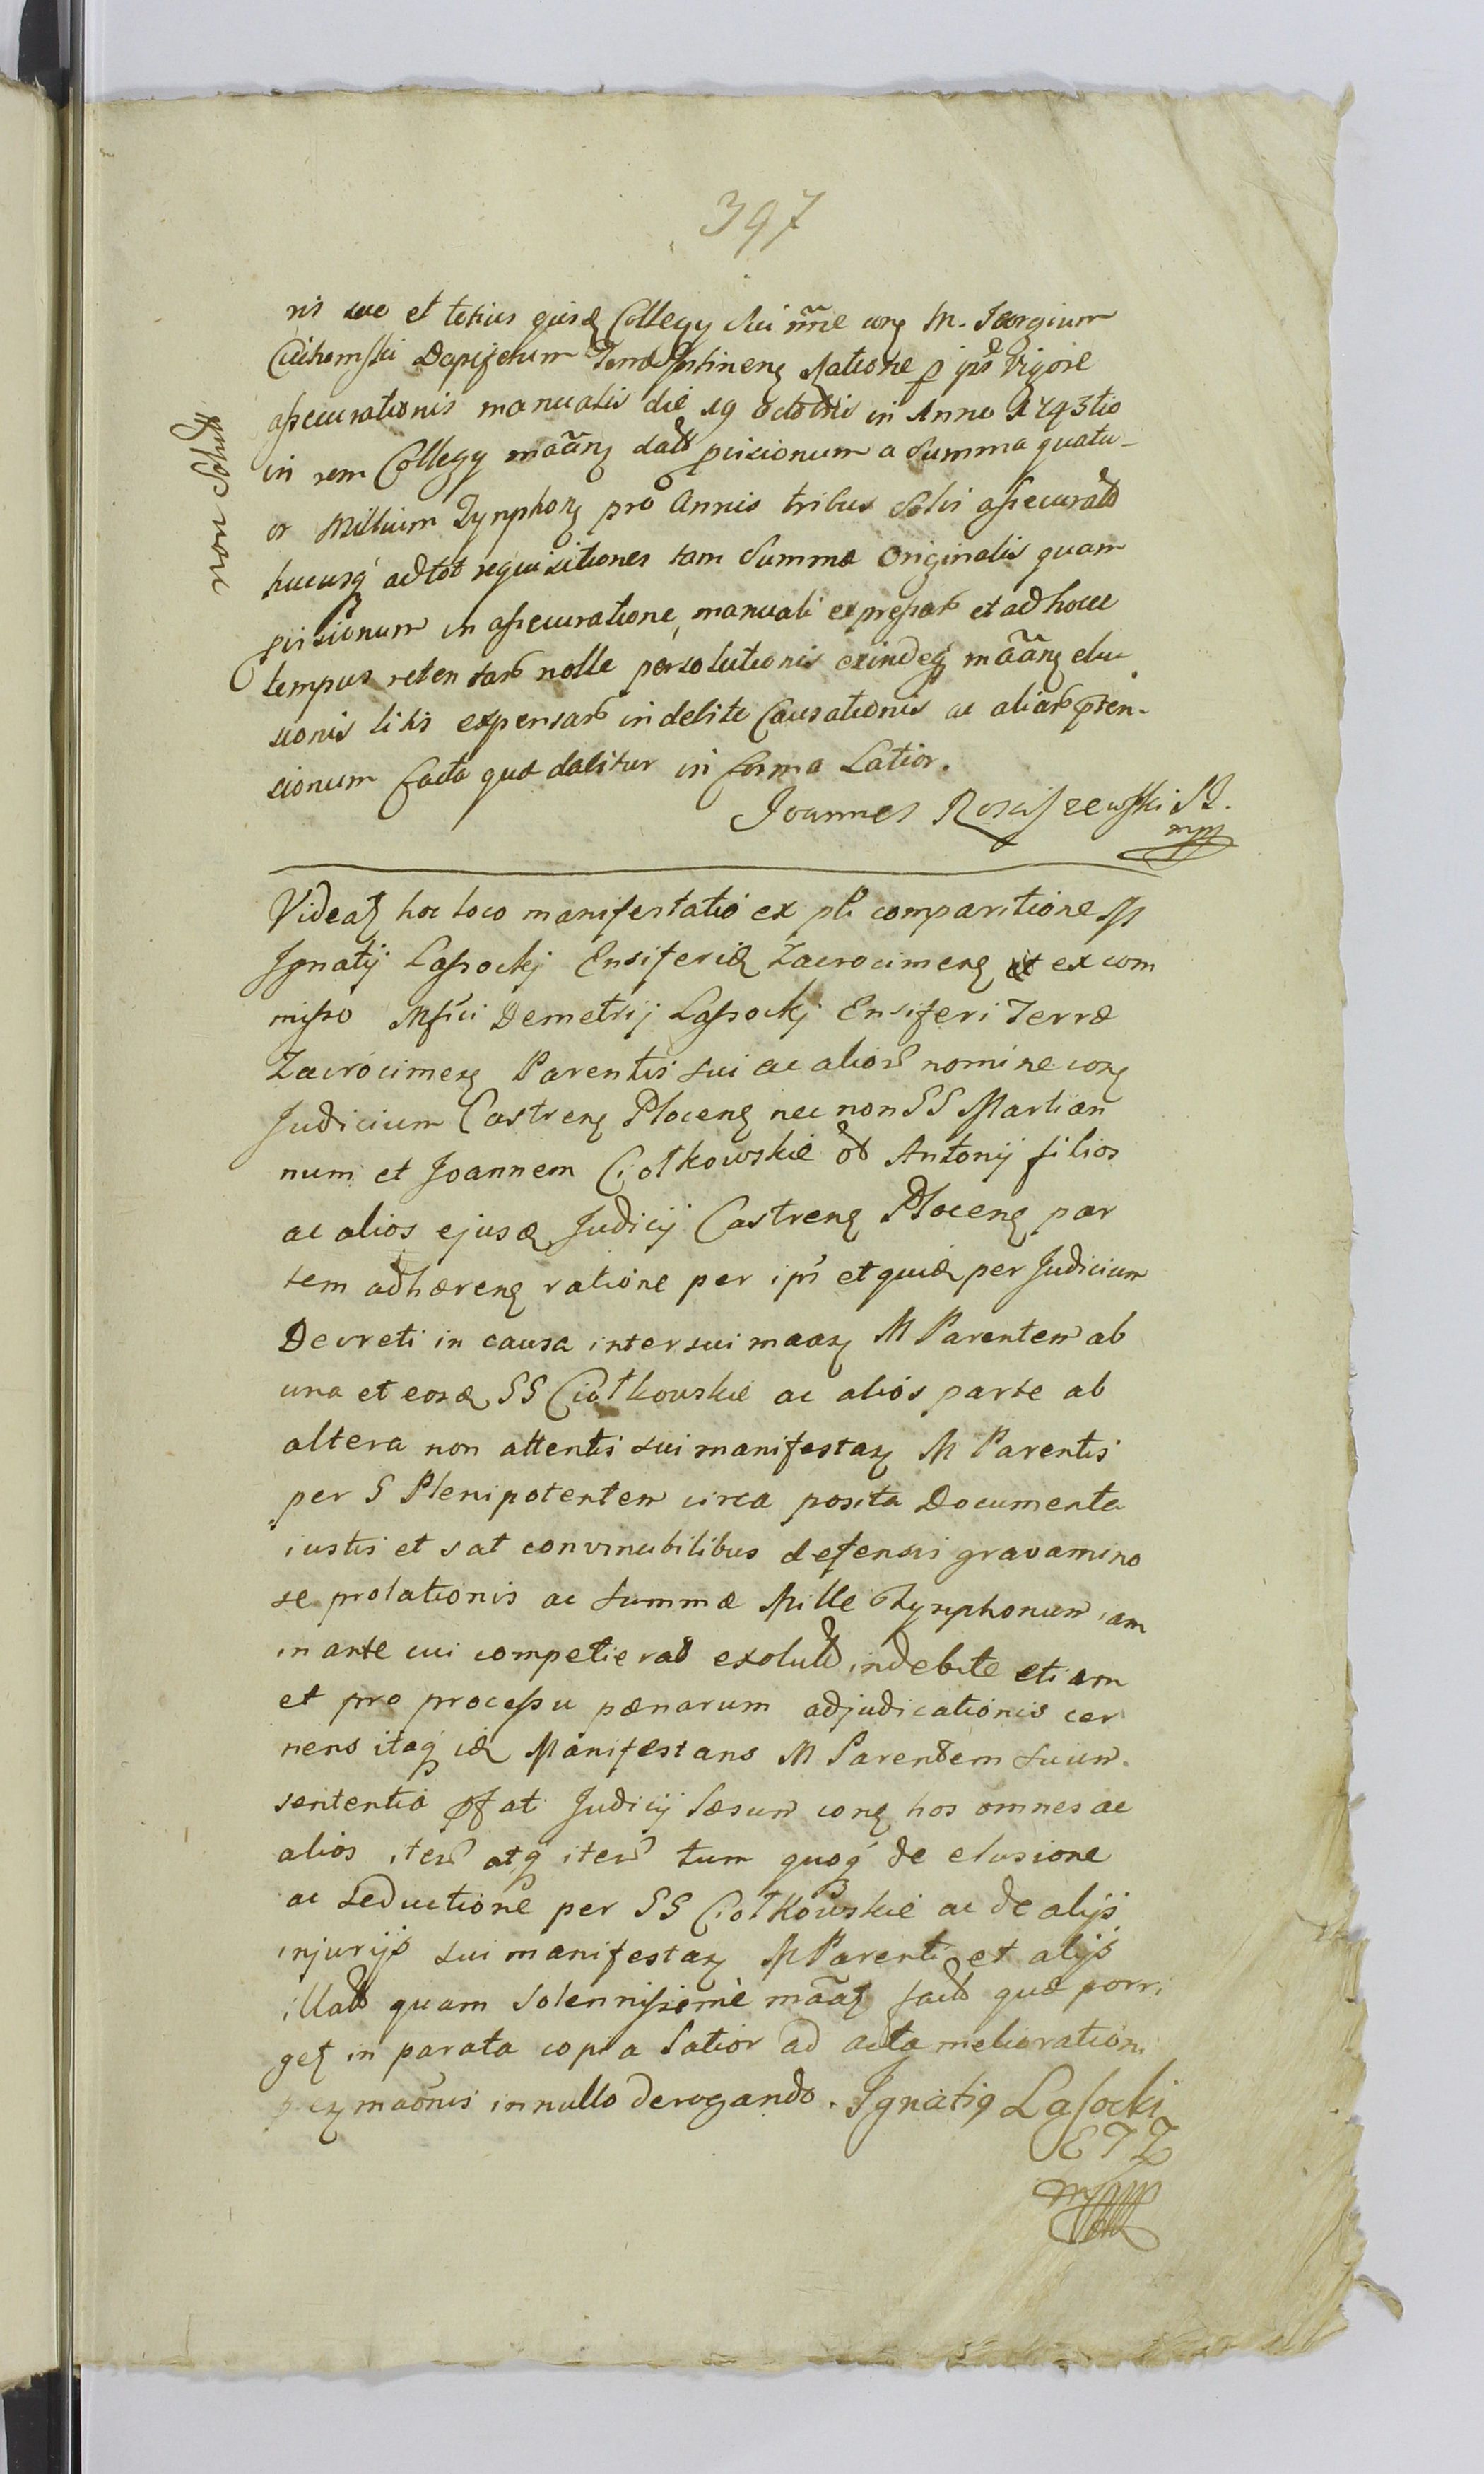 397
non Solut
ris sue et totius ejusd Collegy sui nne con M. Georgium
Cicihomski Dapiferum Terræ Gostinen Ratione p ips Vigore
assecurationis manualis die 19 Octobris in Anno 1743tio
in rem Collegy maan dat pvisionum a Summa quatu-
or Millium Tynphon pro Annis tribus Solvi assecurat
hucusq ad tot requisitiones tam Summæ Originalis quam
pvisionum in assecuratione manuali expressar et ad hocce
tempus retentar nolle persolutionis exindeq maan elu
sionis litis expensar indebite Causationis ac aliar pten-
sionum facta quæ dabitur in forma Latior.
Joannes Rosciszewski SJ.
mpp
Videat hoc loco manifestatio ex pli comparitione M
Ignatij Lassockj Ensiferid Zacrocimen et ex com
misso Mfici Demetrij Lassockj Ensiferi Terræ
Zacrocimen Parentis sui ac alior nomine con
Judicium Castren Plocen nec non SS Martian
num et Joannem Ciołkowskie od Antonij filios
ac alios ejusd Judicij Castren Plocen par
tem adhæren ratione per ips et quid per Judicium
Decreti in causa inter sui maan M Parentem ab
una et eosd SS Ciołkowskie ac alios parte ab
altera non attentis sui manifestan M Parentis
per S Plenipotentem circa posita Documenta
iustis et sat convincibilibus defensis gravamino
se prolationis ac Summæ Mille Tynphonum iam
in ante cui competierat exolut indebite etiam
et pro processu pænarum adjudicationis cer
nens itaq id Manifestans M Parentem suum
sententia pfati Judicij Læsum con hos omnes ac
alios iter atq iter tum quoq de elusione
ac seductione per SS Ciołkowskie ac de alijs
injurijs sui manifestan M Parenti et alijs
illat quam Solennissimè maat facit quæ porri
get in parata copia Latior ad acta melioration
maonis in nullo derogando. Ignatiq Lasocki
ETZ
mpp